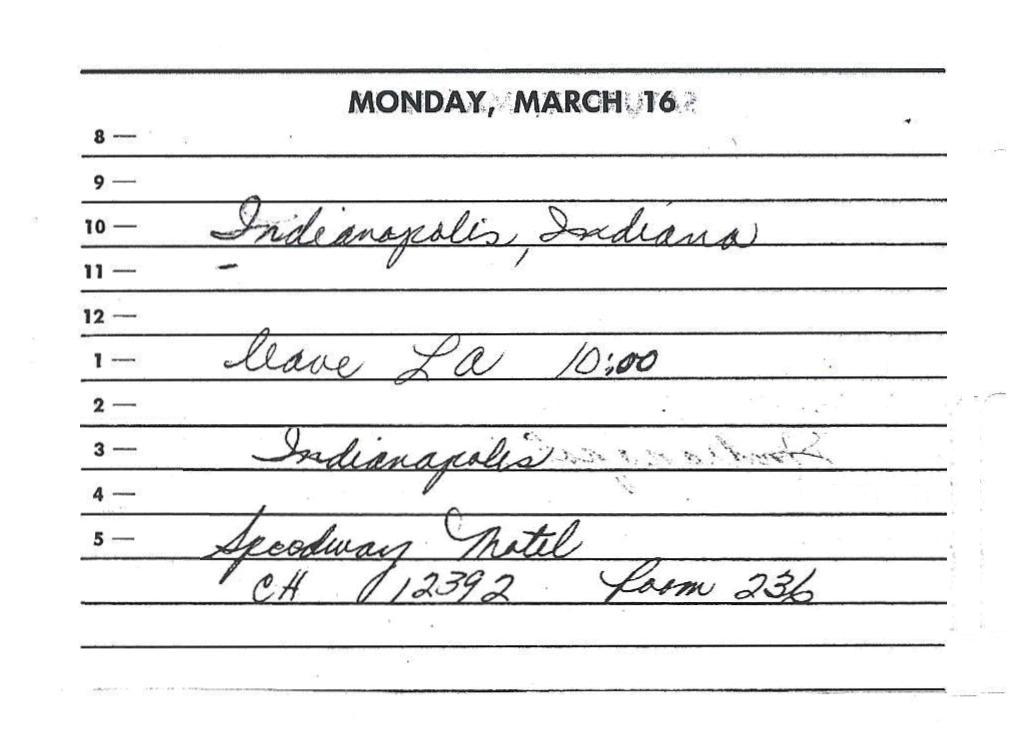 MONDAY, MARCH 16
8 —
9 —
10 — Indianapolis, Indiana
11 — -
12 —
1 — leave LA 10:00
2 —
3 — Indianapolis
4 —
5 — Speedway Motel
CH 12392 Room 236